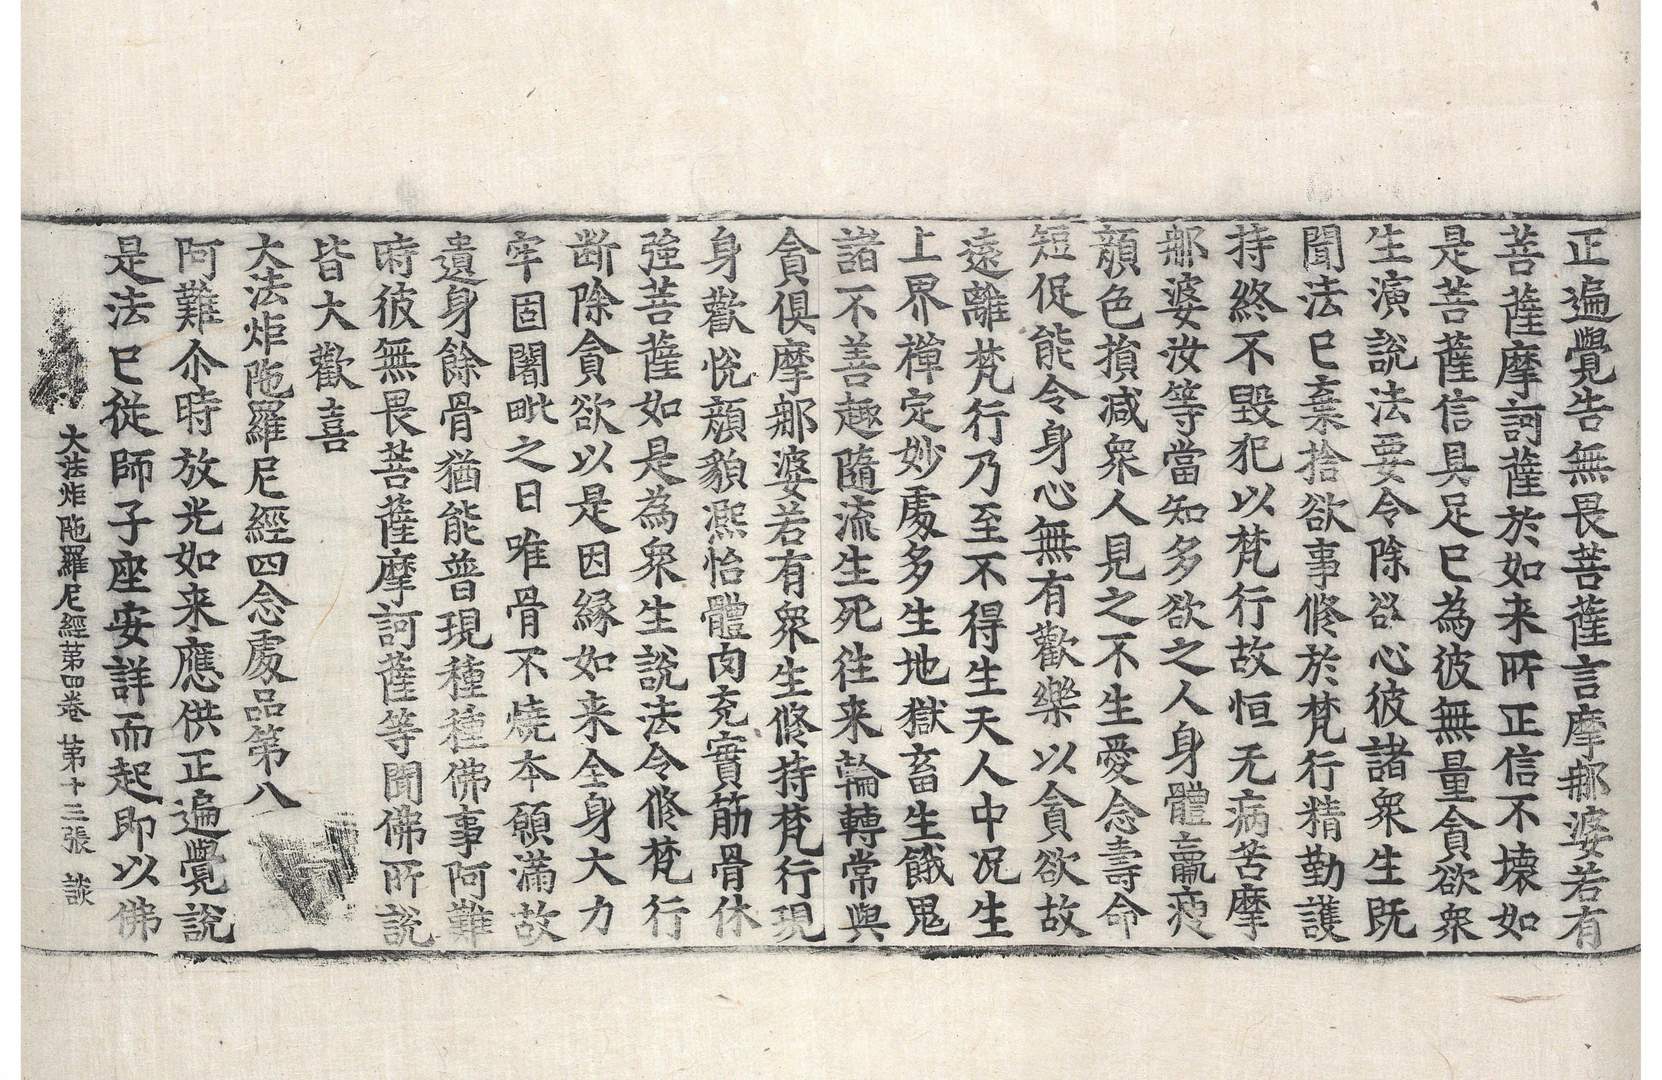 正遍覺告無畏菩薩言摩那婆若有
菩薩摩訶薩於如来所正信不壞如
是菩薩信具足已為彼無量貪欲衆
生演說法要令除欲心彼諸衆生既
聞法已棄捨欲事修於梵行精勤護
持終不毀犯以梵行故恒无病苦摩
那婆汝等當知多欲之人身體羸瘦
顔色損減衆人見之不生愛念壽命
短促能令身心無有歡樂以貪欲故
遠離梵行乃至不得生天人中况生
上界禪定妙處多生地獄畜生餓鬼
諸不善趣隨流生死往来輪轉常與
貪俱摩那婆若有衆生修持梵行現
身歡悅顔貌凞怡體肉充實筋骨休
強菩薩如是為衆生說法令修梵行
断除貪欲以是因縁如来全身大力
牢固闍毗之日唯骨不燒本願滿故
遺身餘骨猶能普現種種佛事阿難
時彼無畏菩薩摩訶薩等聞佛所說
皆大歡喜
大法炬陁羅尼經四念處品第八
阿難尒時放光如来應供正遍覺說
是法已從師子座安詳而起即以佛
大法炬陁羅尼經第四卷 第十三張 談